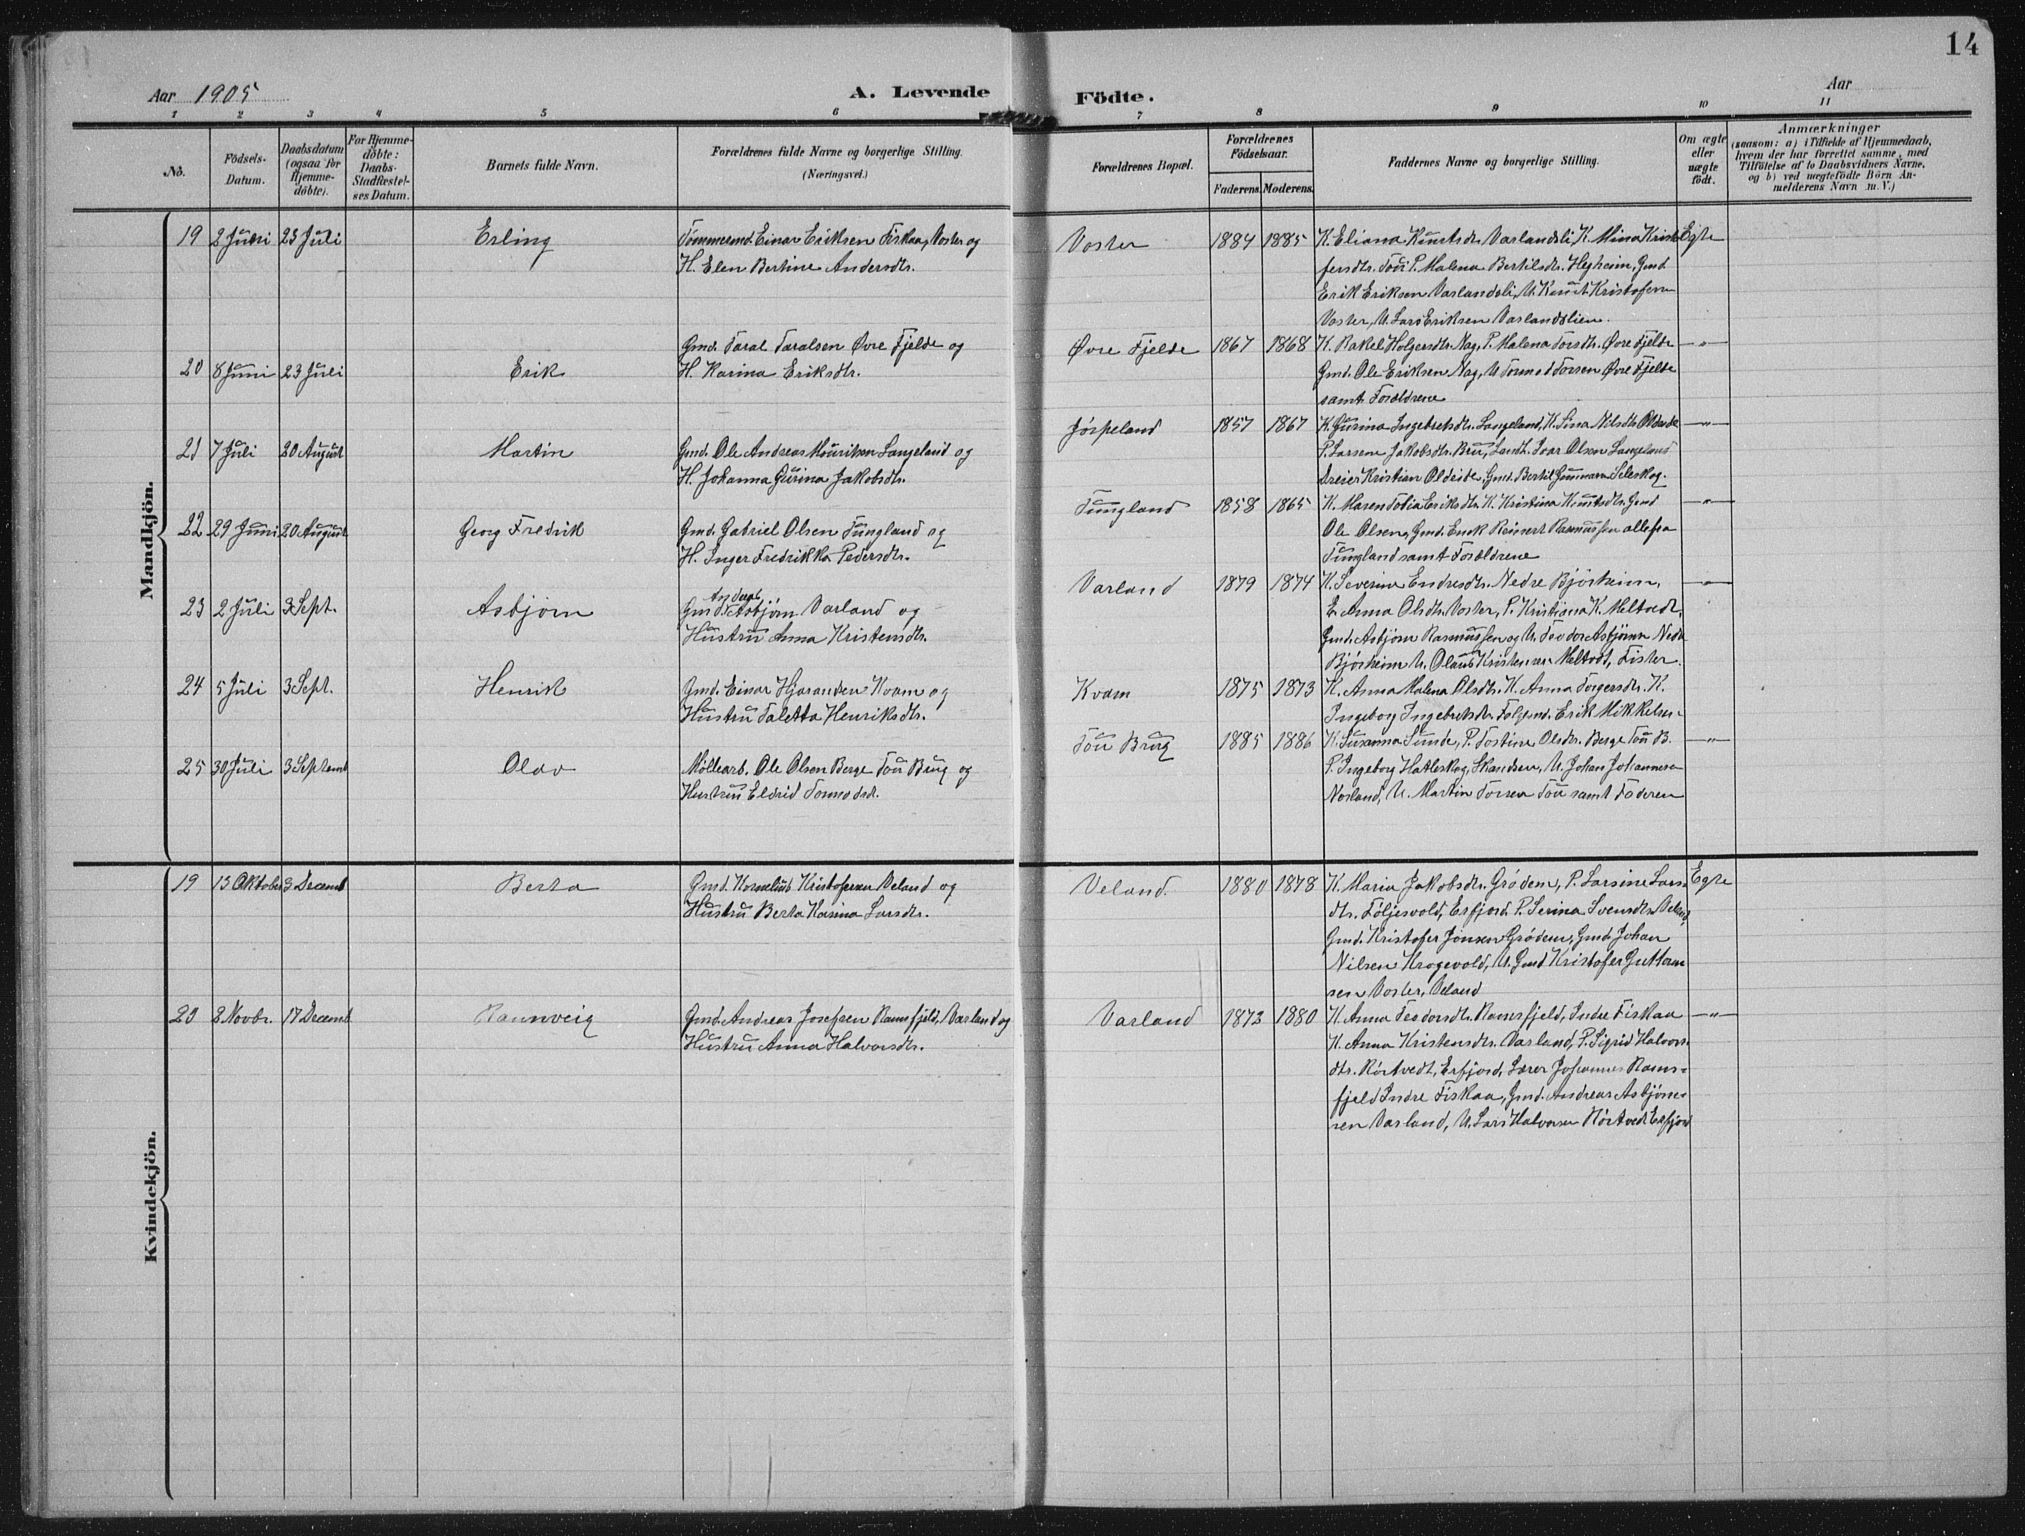 14
Aar 1905
A. Levende Födte.
Aar
1 2 3 4 5 6 7 8 9 10 11
No.
Födsels-Datum.
Daabsdatum (ogsaa for Hjemme-döbte).
For Hjemme-döbte: Daabs-Stadfæstel-ses Datum.
Barnets fulde Navn.
Forældrenes fulde Navne og borgerlige Stilling.
(Næringsvei.)
Forældrenes Bopæl.
Forældrenes Födselsaar.
Faderens. Moderens.
Faddernes Navne og borgerlige Stilling.
Om ægte eller uægte födt.
Anmærkninger
(saasom: a) i Tilfælde af Hjemmedaab,
hvem der har forrettet samme, med
Tilföielse af to Daabsvidners Navne,
og b) ved uægtefödte Börn An-
melderens Navn m. V.)
Mandkjön.
19 2 Juni 23 Juli Erling Tømmermd. Einar Eriksen Fiskaa, Voster og
H. Elen Bertine Andersdtr.
Voster 1884 1885 K. Eliana Knutsdtr. Varlandsli, K. Mina Kristo- Egte
fersdtr. Tou P. Malena Bertilsdtr. Hegheim, Gmd.
Erik Eriksen Varlandsli, U. Knut Kristofersen
Voster, U. Lars Eriksen Varlandslien.
20 8 Juni 23 Juli Erik Gmd. Taral Taralsen Øvre Fjelde og
H. Karina Eriksdtr.
Øvre Fjelde 1867 1868 K. Rakel Holgersdtr. Nag, P. Malena Torsdtr. Øvre Fjelde —"—
Gmd. Ole Eriksen Nag, U. Tormod Torsen Øvre Fjelde
samt Forældrene
21 7 Juli 20 August Martin Gmd. Ole Andreas Mouritsen Langeland og
H. Johanna Gurina Jakobsdtr.
Jørpeland 1857 1867 K. Gurina Ingebretsdtr. Langeland, K. Sina Nilsdtr. —"—
P. Larsem Jakobsdtr. Bru, Landh. Ivar Olsen Langeland
Dreier Kristian Oldeide, Gmd. Bertil Gunnarsen Seleskog.
22 29 Juni 20 August Georg Fredrik Gmd. Gabriel Olsen Tungland og
H. Inger Fredrikka Pedersdtr.
Tungland 1858 1865 K. Maren Sofia Eriksdtr. K. Kristina Knutsdtr. Gmd. —"—
Ole Olsen, Gmd. Enok Reinert Rasmussen alle fra
Tungland samt Forældrene
23 2 Juli 3 Sept. Asbjørn Gmd. Andreas Asbjørn. Varland og
Hustru Anna Kristensdtr.
Varland 1879 1874 K. Severine Endresdtr. Nedre Bjørheim, —"—
E. Anna Olsdtr. Voster, P. Kristiana K. Meltvedt
Gmd. Asbjørn Rasmussen og U. Teodor Asbjørnsen Nedre
Bjørheim U. Olaus Kristensen Meltvedt, Fister.
24 5 Juli 3 Sept. Henrik Gmd. Einar Hjarandsen Kvam og
Hustru Taletta Henriksdtr.
Kvam 1875 1873 K. Anna Malena Olsdtr. K. Anna Torgersdtr. K.
Ingeborg Ingebretsdtr. Følgmd. Erik Mikkelsen
25 30 Juli 3 Septemb Olav Møllearb. Ole Olsen Berge Tou Brug og
Hustru Eldrid Tormodsdt.
Tou Brug 1885 1886 K. Susanna Sunde, P. Tostine Olsdtr. Berge Tou B. —"—
P. Ingeborg Hatleskog, Skandsen, U. Johan Johannesen
Norland, U. Martin Torsen Tou samt Faderen
Kvindekjön.
19 13 Oktober 3 Decemb Berta Gmd. Kornelius Kristofersen Veland og
Hustru Berta Karina Larsdtr.
Veland 1880 1878 K. Maria Jakobsdtr. Grødem, P. Larsine Lars- Egte
dtr. Følgesvold, Erfjord. P. Serina Svensdtr. Veland,
Gmd. Kristofer Jonsen Grødem, Gmd. Johan
Nilsen Krogevold, U. Gmd. Kristofer Guttorm-
sen Voster, Veland
20 2 Novbr. 17 Decemb Raunveig Gmd. Andreas Josefsen Ramsfjeld, Varland og
Hustru Anna Halvorsdtr.
Varland 1873 1880 K. Anna Teodorsdtr. Ramsfjeld, Indre Fiskaa —"—
K. Anna Kristensdtr. Varland, P. Sigrid Halvors-
dtr. Rørtvedt, Erfjord, Lærer Johannes Rams-
fjeld Indre Fiskaa, Gmd. Andreas Asbjørn-
sen Varland, U. Lars Halvorsen Rørtvedt Erfjord